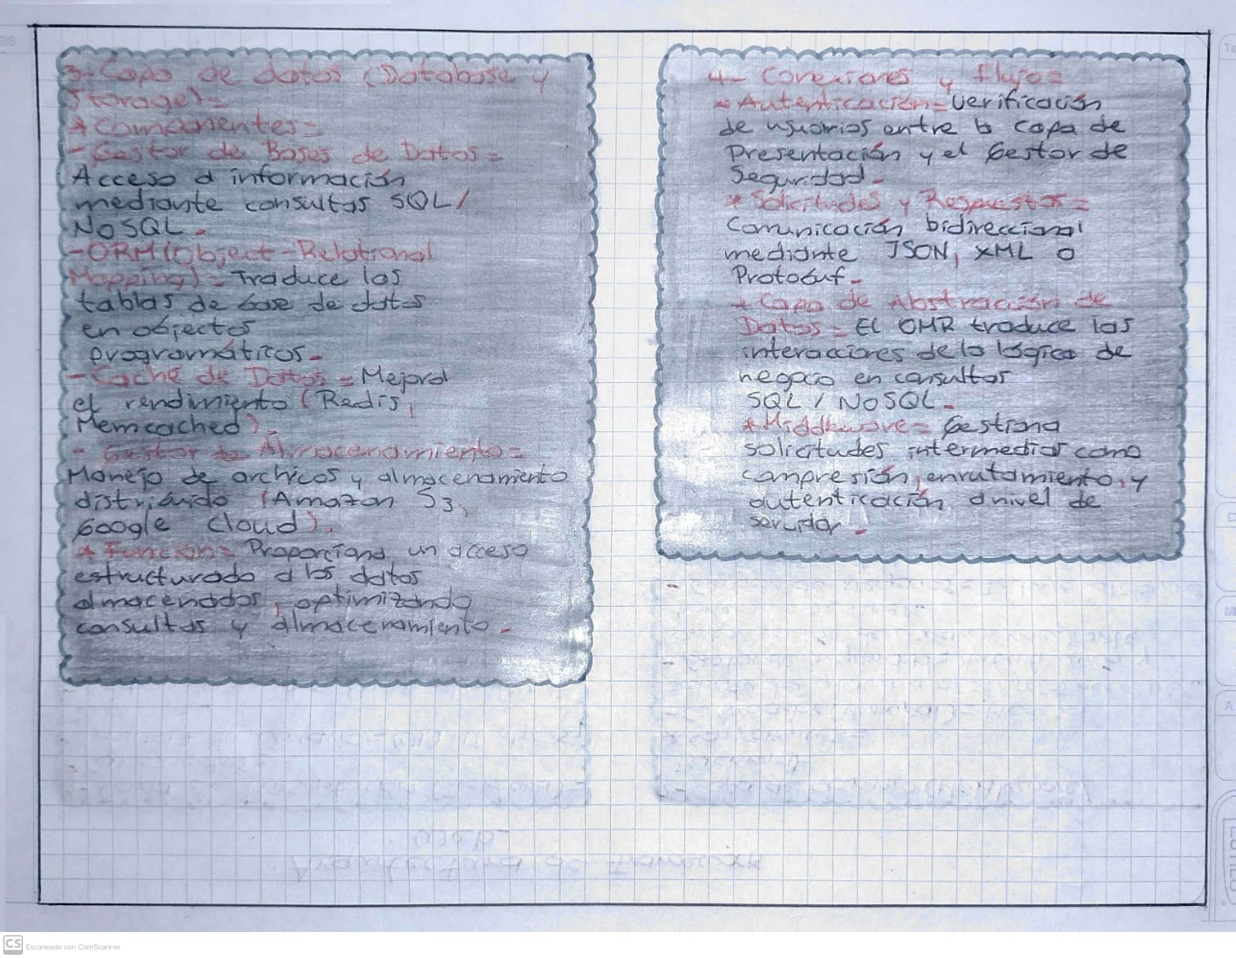 3- Capa de datos (Database y
Storage)=
* Componentes=
- Gestor de Bases de Datos=
Acceso a información
mediante consultas SQL/
NoSQL.
- ORM (Object-Relational
Mapping)= Traduce las
tablas de base de datos
en objectos
programáticos.
- Caché de Datos = Mejora
el rendimiento (Redis,
Memcached).
- Gestor de Almacenamiento=
Manejo de archicos y almacenamiento
distribuido (Amazon S3,
Google Cloud).
* Función= Proporciona un acceso
estructurado a los datos
almacenados, optimizando
consultas y almacenamiento.
4- Conexiones y Flujo=
* Autenticación= Verificación
de usuarios entre la capa de
Presentación y el Gestor de
Seguridad.
* Solicitudes y Respuestas=
Comunicación bidireccional
mediante JSON, XML o
Protobuf.
* Capa de Abstracción de
Datos= El OMR traduce las
interacciones de la lógica de
negocio en consultas
SQL / NoSQL.
* Middleware= Gestiona
solicitudes intermedias como
compresión, enrutamiento, y
autenticación a nivel de
servidor.
CS Escaneado con CamScanner